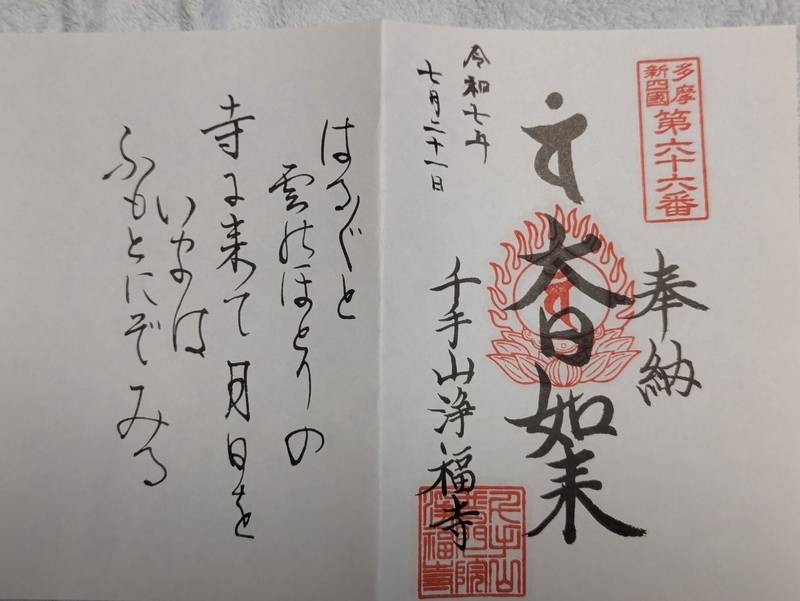 多摩
新四國
第六十六番
奉納
大日如来
千手山浄福寺
千手山
普門院
浄福寺
令和七年
七月二十一日
はる〲と
雲のほとりの
寺に来て月日を
いまは
ふもとにぞみる